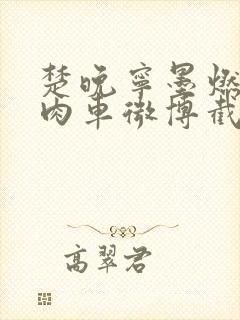 楚晚宁墨燃
肉车微博截
高翠君